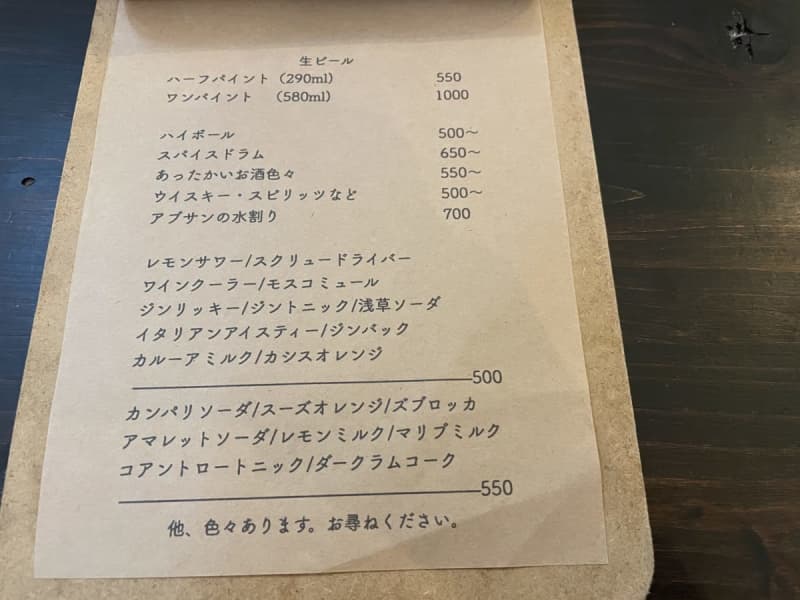 生ビール
ハーフパイント（290ml） 550
ワンパイント （580ml） 1000
ハイボール 500～
スパイスドラム 650～
あったかいお酒色々 550～
ウイスキー・スピリッツなど 500～
アブサンの水割り 700
レモンサワー/スクリュードライバー
ワインクーラー/モスコミュール
ジンリッキー/ジントニック/浅草ソーダ
イタリアンアイスティー/ジンバック
カルーアミルク/カシスオレンジ
500
カンパリソーダ/スーズオレンジ/ズブロッカ
アマレットソーダ/レモンミルク/マリブミルク
コアントロートニック/ダークラムコーク
550
他、色々あります。お尋ねください。